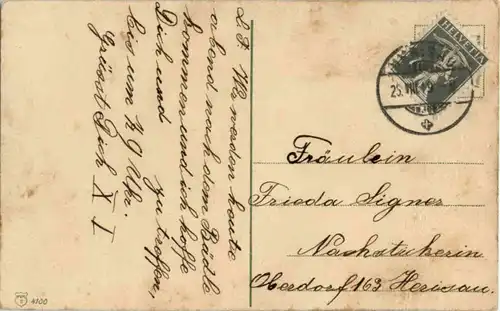 L. F. Wir werden heute
abend nach dem Bädle
kommen und ich hoffe
Dich und zu treffen,
bis um ½ 9 Uhr.
Grüsst Dich X I
HELVETIA
25. VIII
Fräulein
Frieda Signer
Nachstickerin
Oberdorf 163 Herisau.
4100